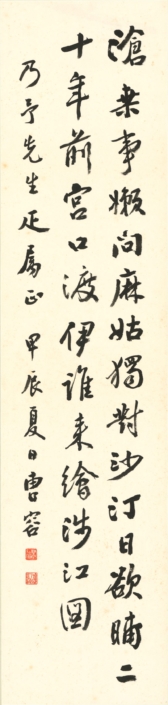 滄桑事嬾問麻姑獨對沙汀日欲晡二
十年前宮口渡伊誰來繪涉江圖
乃予先生疋屬正 甲辰夏日曹容